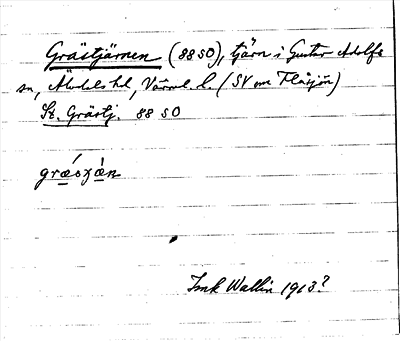 Grästjärnen (88 SO), tjärn i Gustav Adolfs
sn, Älvdals hd, Värml. l. (SV om Flåsjön)
St. Grästj. 88 SO
græ´sʒæ`n
Ink Wallin 1913?